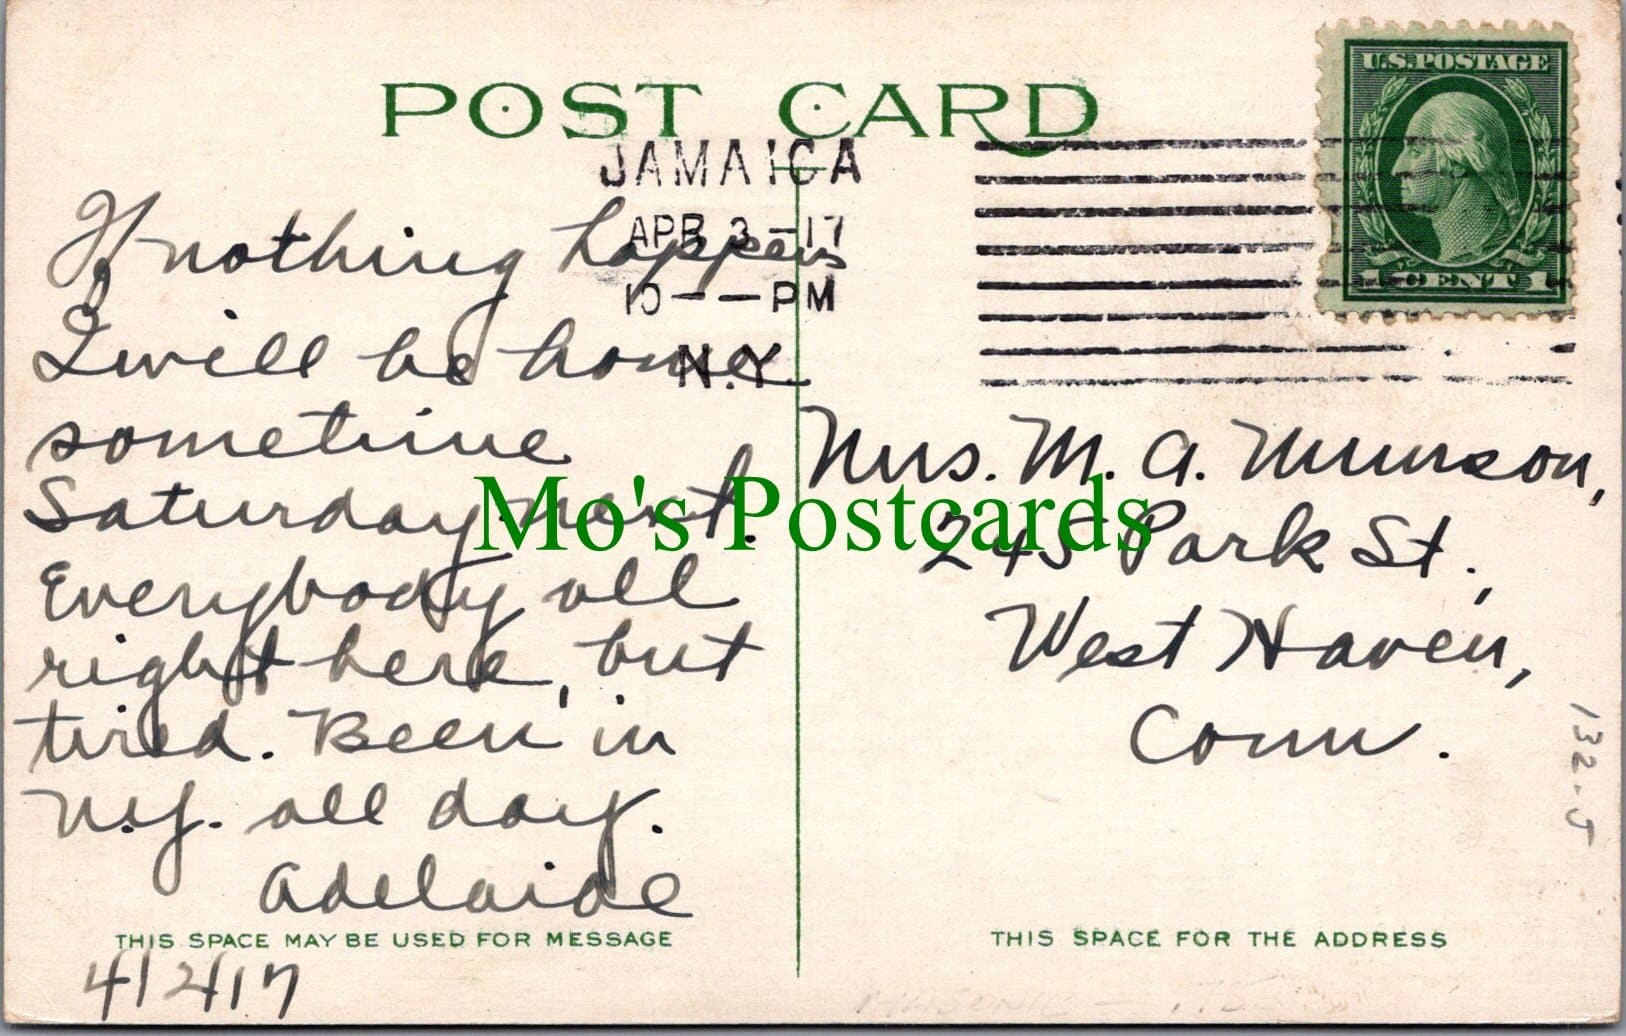 POST CARD
U.S.POSTAGE
1 CENT 1
JAMAICA
APR 3 -17
10 — — PM
N.Y.
If nothing happens
I will be home
sometime
Saturday next.
Everybody all
right here, but
tired. Been in
N.Y. all day.
Adelaide
THIS SPACE MAY BE USED FOR MESSAGE
4/2/17
Mo's Postcards
Mrs. M. A. Munson,
245 Park St.,
West Haven,
Conn.
THIS SPACE FOR THE ADDRESS
132-5